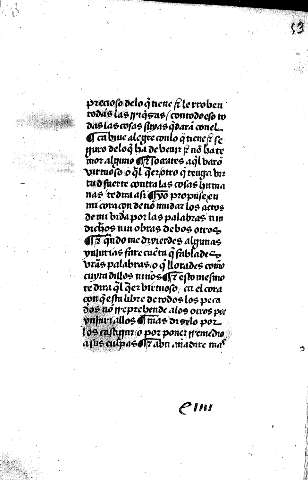 53
precioso delo q̃ tiene si le rroben
todas las rriq̃zas / con todo eso to
das las cosas suyas q̃dara con el
¶ ca biue alegre con lo q̃ tiene se
guro delo q̃ ha de venir si no ha te
mor alguno ¶ Et o autes aq̃l varo
virtuoso o q̃l q̃er otro q̃ tenga vir
tud fuerte contra las cosas huma
nas te dira asi ¶ yo propuse en
mi coraçon de no mudar los actos
de mi vida por las palabras nin
dichos nin obras de los otros
¶ Et q̃ndo me dixerdes algunas
iniurias fare cuẽta q̃ fablades
vr̃as palabras o q̃ llorades como
niños ¶ Et esto mesmo
te dira q̃l q̃er virtuoso ca el cora
çon q̃ esta libre de todos los peca
dos no rreprehende a los otros por
iniuriallos ¶ mas diselo por
los castigar o por poner rremedio
a sus culpas ¶ Et abn añadire mas
e iiii